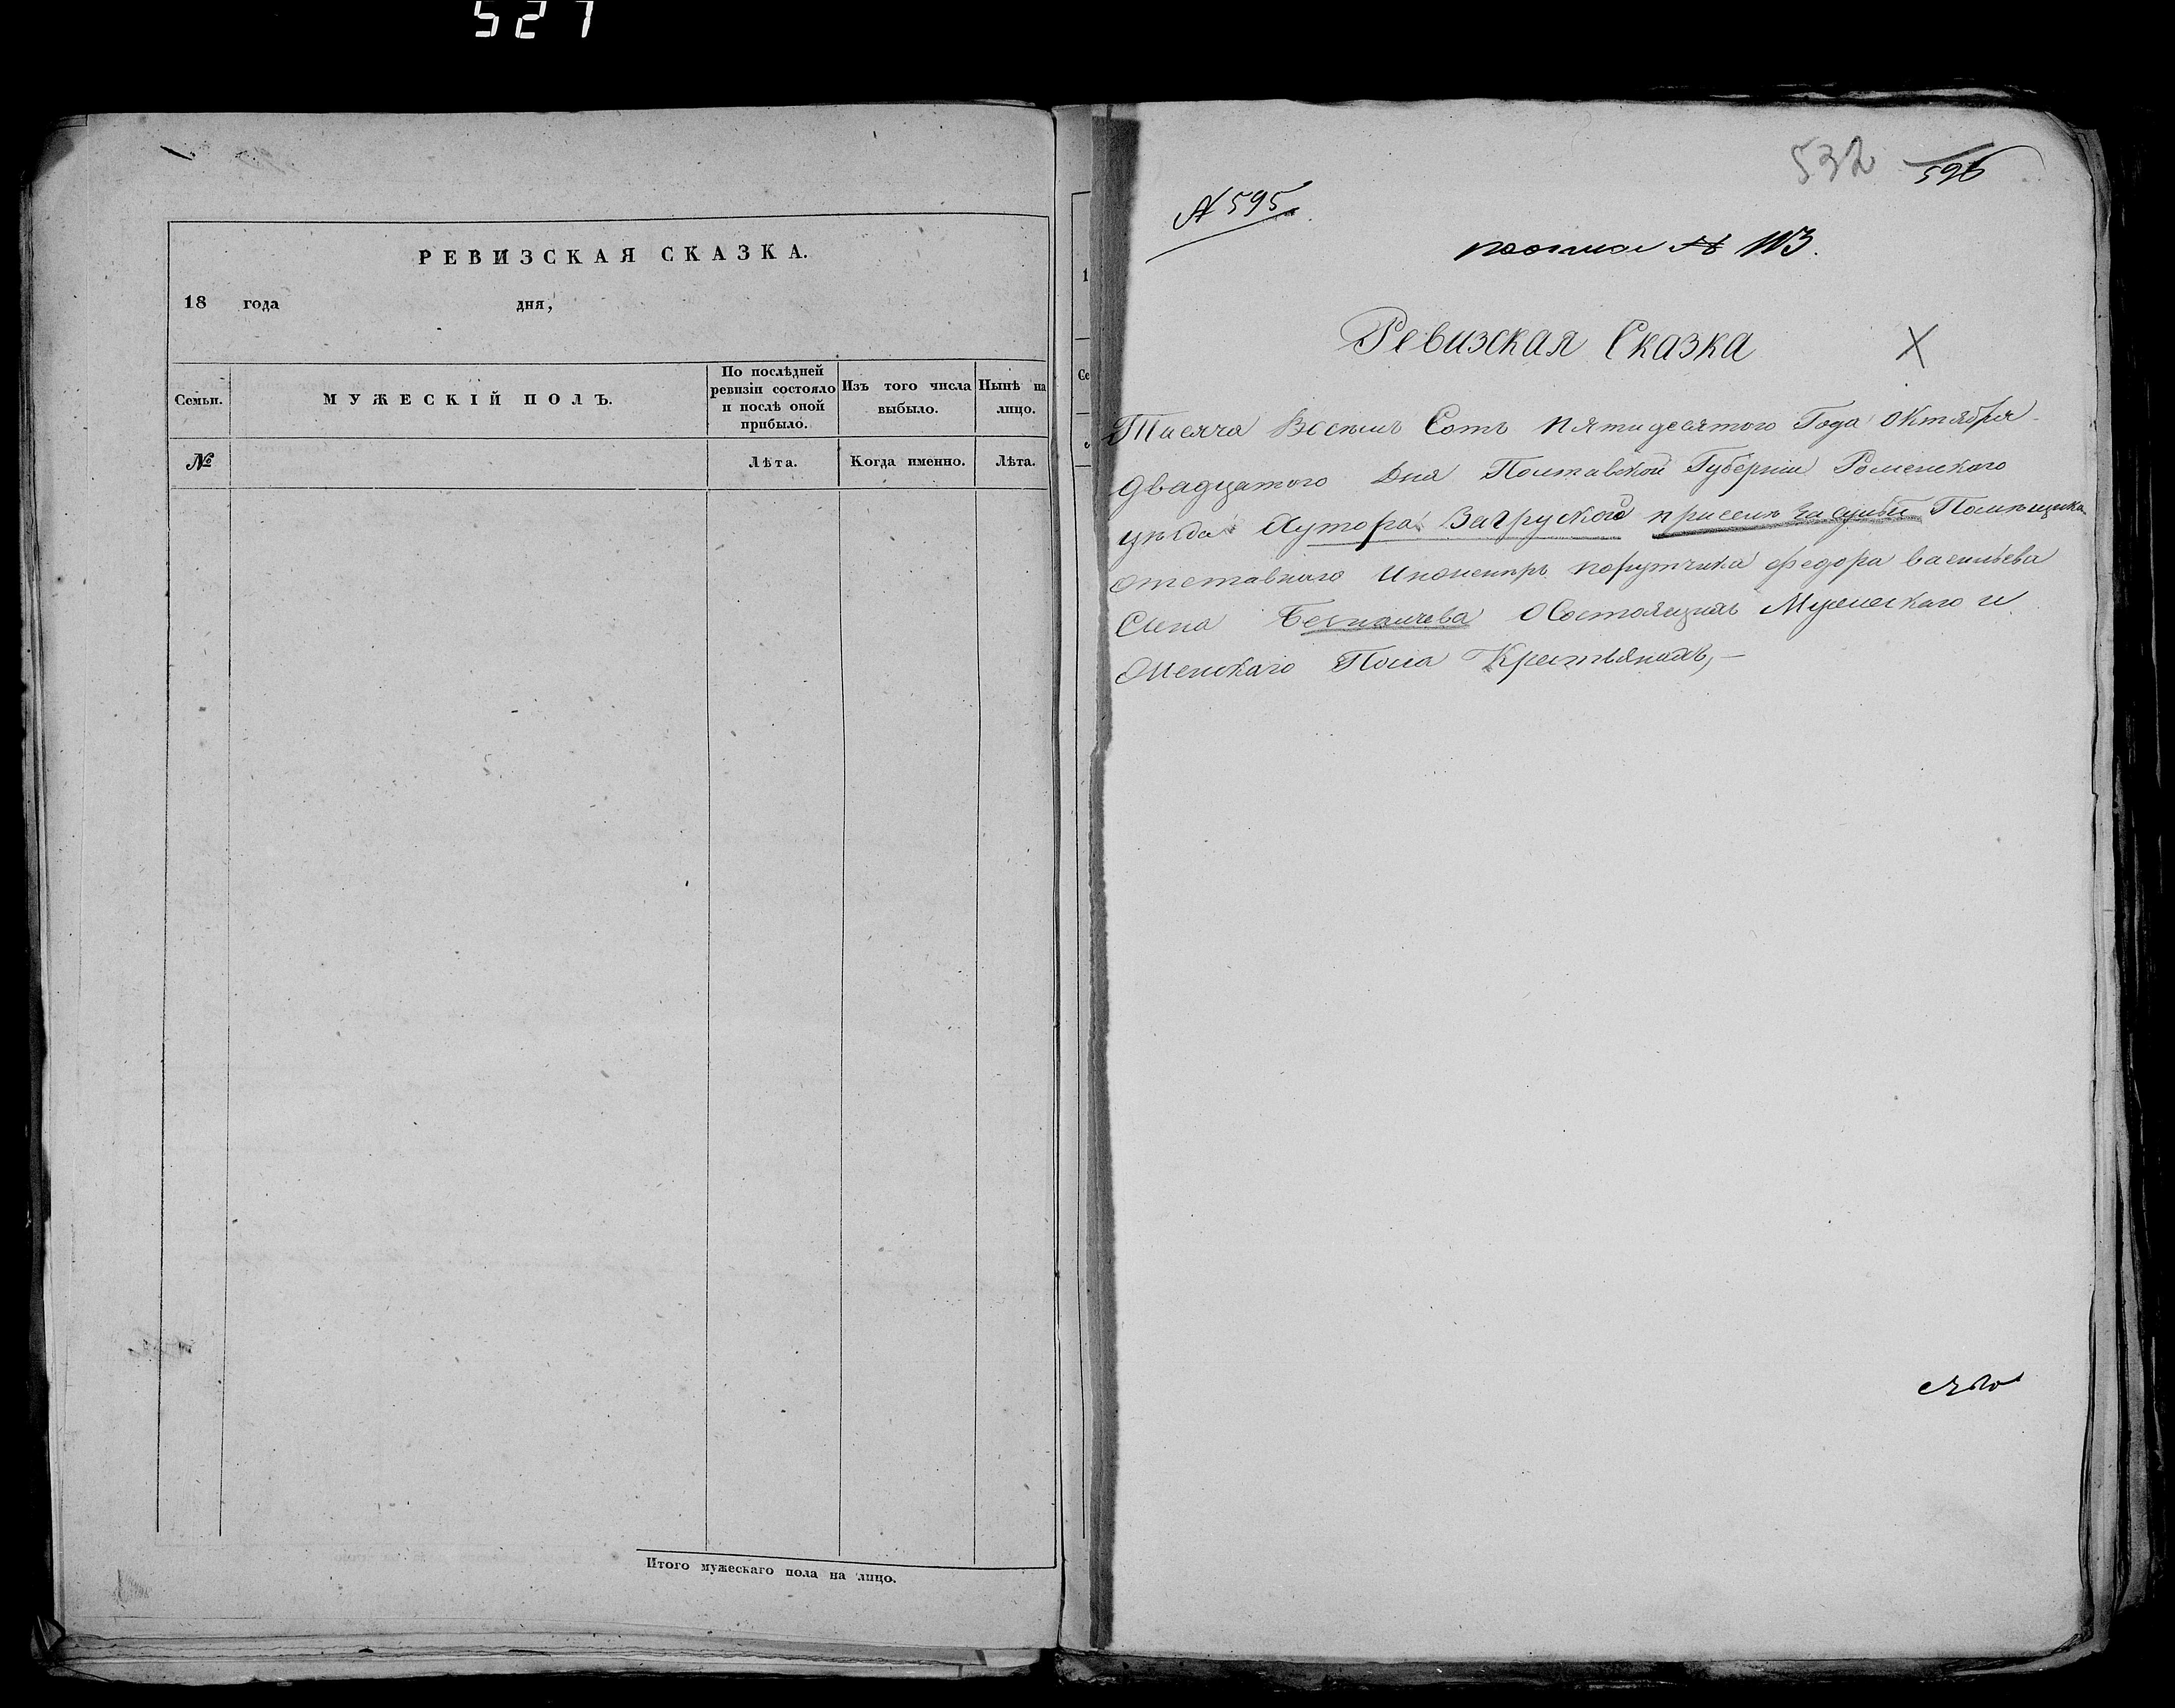 527
РЕВИЗСКАЯ СКАЗКА.
18 года дня,
Семьи.
МУЖЕСКІЙ ПОЛЪ.
По послѣдней
ревизіи состояло
и послѣ оной
прибыло.
Изъ того числа
выбыло.
Нынѣ на
лицо.
№
Лѣта.
Когда именно.
Лѣта.
Итого мужескаго пола на лицо.
532 596
№ 595
№ 113.
Ревизская Сказка
Тисяча Восемь Сотъ пятидесятого Года Октября
двадцатого Дня Полтавской Губерніи Роменского
уѣзда Хутора Загруского при Помѣщика
отставного Инженеръ порутчика федора васильева
Сына О Состоящихъ Мужескаго и
Женскаго Пола Крестьянахъ,—